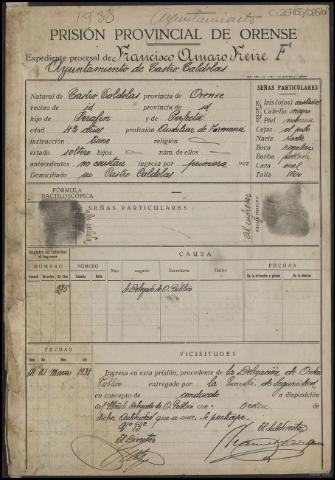 1938 Ayuntamiento
PRISIÓN PROVINCIAL DE ORENSE
Expediente procesal de Francisco Amaro Freire F
Ayuntamiento de Castro Caldelas
Natural de Castro Caldelas provincia de Orense
vecino de id provincia de id
hijo de Serafin y de
edad 42 años profesión Auxiliar de Farmacia
instrucción tiene religión
estado soltero hijos núm. de ellos
antecedentes no constan ingresa por primera vez
Domiciliado en Castro Caldelas
SEÑAS PARTICULARES
Iris (ojos) castaños
Cabello negro
Piel morena
Cejas al pelo
Nariz
Boca regular
Barba poblada
Cara oval
Talla
FÓRMULA
DACTILOSCÓPICA
SEÑAS PARTICULARES
Al ingresar
CAUSA
NÚMERO
FECHAS
Núm.
Juzgado
Secretaría
Delito
NÚMERO
FECHAS
975
A Delegado de O. Público
FECHAS
VICISITUDES
21 Marzo 1938
Ingresa en esta prisión, procedente de la Delegación de Orden
Público entregado por la Guardia de Seguridad
en concepto de conducido a disposición
del Ilmo. Sr. Delegado de O. Público con orden de
dicha Autoridad que se une. Se participa.
Vº Bº
El Director
El Subdirector